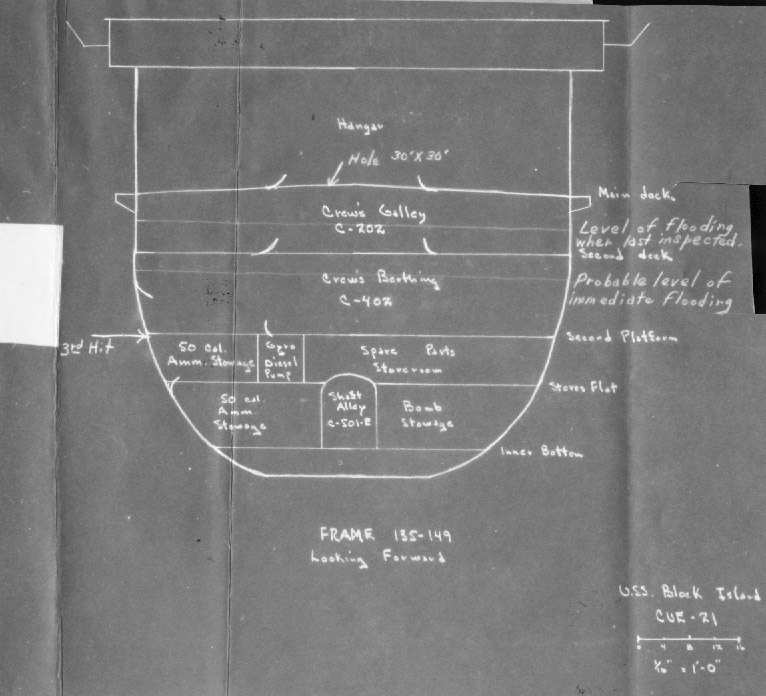 Hangar
Hole 30'X30'
Main deck
Crew's Galley
C-202
Level of flooding
when last inspected.
Second deck
Crew's Berthing
C-402
Probable level of
immediate flooding
3rd Hit
Second Platform
50 Cal.
Amm. Stowage
Gyro
&
Diesel
Pump
Spare Parts
Storeroom
Stores Flat
50 cal.
Amm.
Stowage
Shaft
Alley
C-501-E
Bomb
Stowage
Inner Bottom
FRAME 135-149
Looking Forward
U.S.S. Block Island
CVE-21
0 4 8 12 16
1/16" = 1'-0"